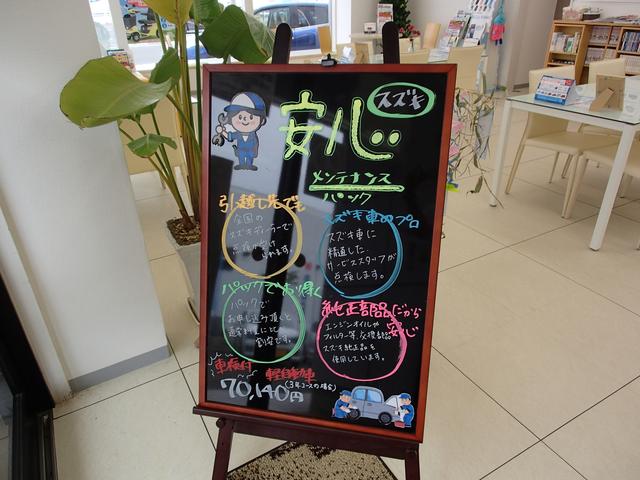 スズキ
安心
メンテナンス
パック
引越し先でも
全国の
スズキディーラーで
点検が受け
られます。
スズキ車のプロ
スズキ車に
精通した
サービススタッフが
点検します。
パックでお得く
パックで
お申し込み頂くと
通常料金に比べ
割安です。
純正部品だから
安心
エンジンオイルや
フィルター等、交換部品は
スズキ純正品を
使用しています。
車検付
軽自動車
(3年コースの場合)
70,140円